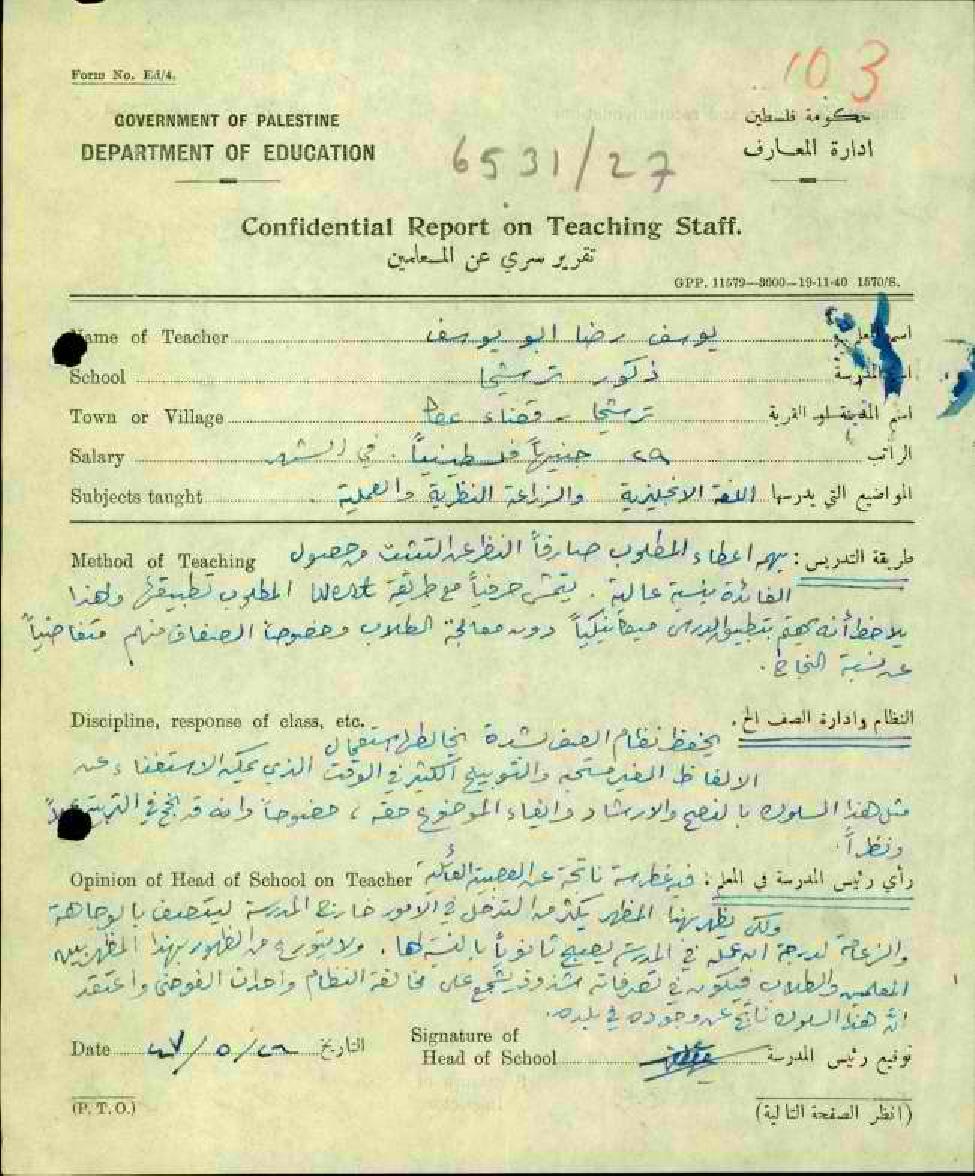 103
Form No. Ed/4.
GOVERNMENT OF PALESTINE
حكومة فلسطين
DEPARTMENT OF EDUCATION
ادارة المعارف
6531/27
Confidential Report on Teaching Staff.
تقرير سري عن المعلمين
GPP. 11579—3000—19-11-40 1570/S.
Name of Teacher يوسف رضا ابو يوسف
School ذكور ترشيحا اسم المدرسة
Town or Village ترشيحا - قضاء عكا اسم المدينة او القرية
Salary ٢٩ جنيهاً فلسطينياً في الشهر الراتب
Subjects taught اللغة الانجليزية والزراعة النظرية والعملية المواضيع التي يدرسها
Method of Teaching طريقة التدريس : يهمه اعطاء المطلوب صارفاً النظر عن التثبت من حصول
الفائدة بنسبة عالية . يتمشى حرفياً مع طريقة West المطلوب تطبيقها ولهذا
يلاحظ أنه يهتم بتطبيق الدرس ميكانيكياً دون معالجة الطلاب وخصوصاً الضعاف منهم متغاضياً
عن نسبة النجاح .
Discipline, response of class, etc. النظام وادارة الصف الخ .
يحفظ نظام الصف بشدة يخالطها استعمال
الالفاظ الغير مستحبة والتوبيخ الكثير في الوقت الذي يمكن الاستغناء عن
مثل هذا السلوك بالنصح والارشاد وايفاء الموضوع حقه ، خصوصاً وانه قد نجح في التربية عملاً
ونظراً .
Opinion of Head of School on Teacher رأي رئيس المدرسة في المعلم : فيه غطرسة ناتجة عن العصبية العائلية
ولكي يظهر بهذا المظهر يكثر من التدخل في الامور خارج المدرسة ليتصف بالوجاهة
والزعامة لدرجة ان عمله في المدرسة يصبح ثانوياً بالنسبة لها . ولا يتورع من الظهور بهذا المظهر بين
المعلمين والطلاب فيكون في تصرفاته شذوذ يشجع على مخالفة النظام واحداث الفوضى واعتقد
ان هذا السلوك ناتج عن وجوده في بلده .
Date ٤٧/٥/٢٩ التاريخ
Signature of
Head of School توقيع رئيس المدرسة
(P. T. O.)
(انظر الصفحة التالية)